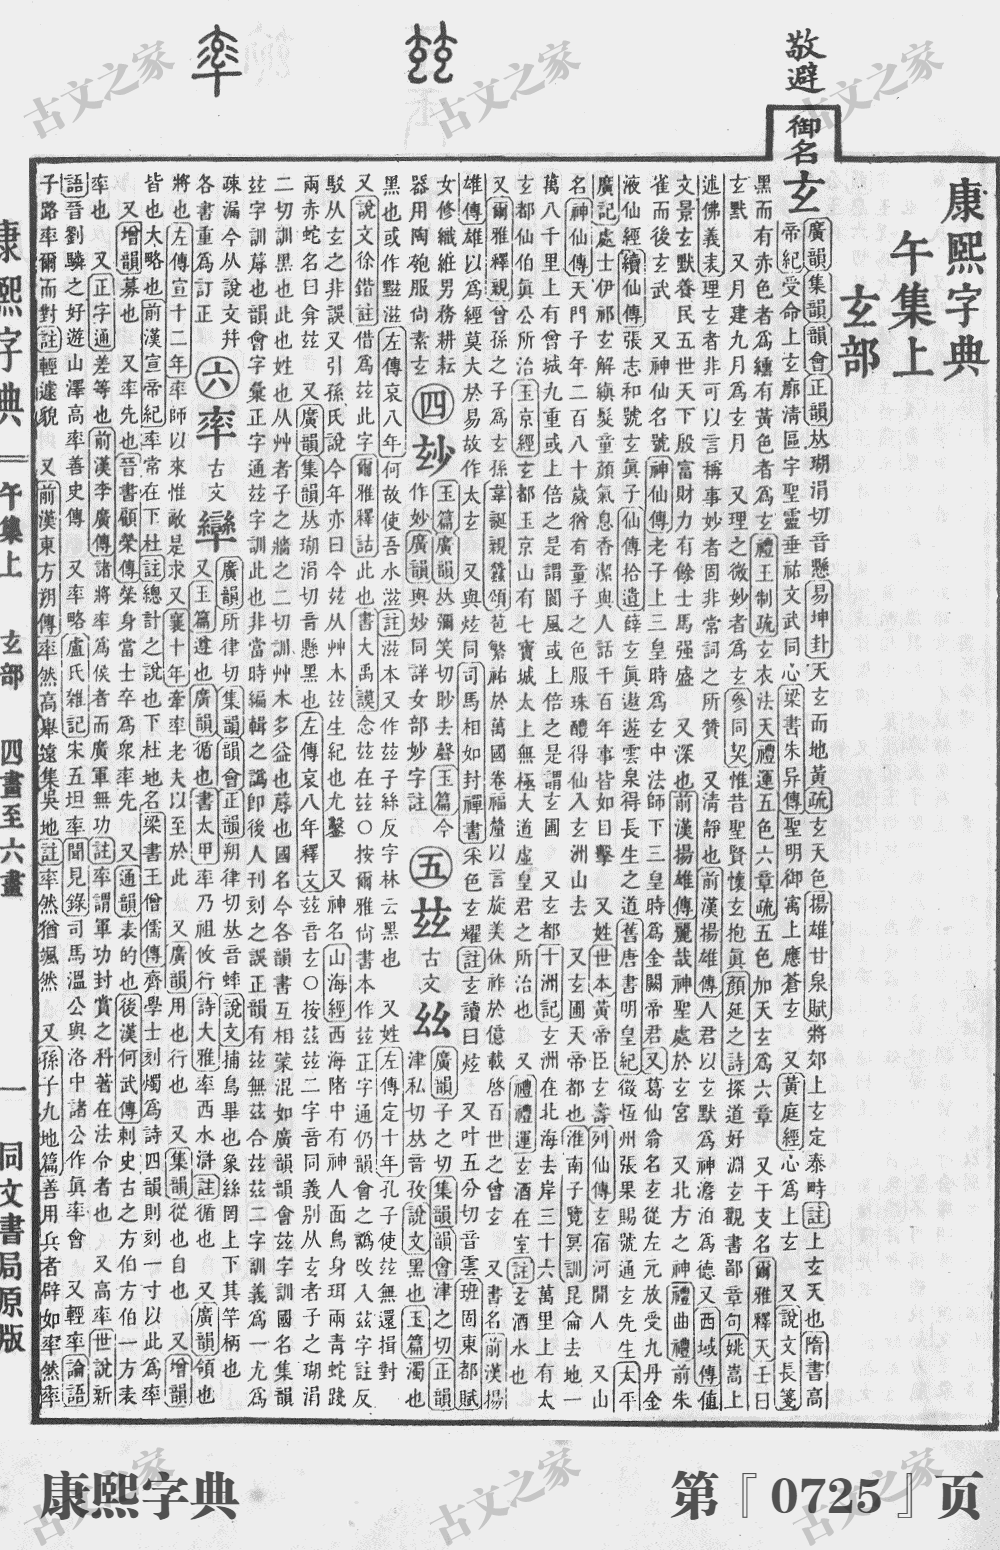 康熙字典
午集上
玄部
敬避
御名
玄
廣韻集韻韻會正韻𠀤瑚涓切音懸易坤卦天玄而地黃疏玄天色揚雄甘泉賦將郊上玄定泰畤註上玄天也隋書高
帝紀受命上玄廓清區宇聖靈垂祐文武同心梁書朱异傳聖明御寓上應蒼玄 又黃庭經心爲上玄 又說文長箋
黑而有赤色者爲纁有黃色者爲玄禮王制疏玄衣法天禮運五色六章疏五色加天玄爲六章 又干支名爾雅釋天壬曰
玄默 又月建九月爲玄月 又理之微妙者爲玄參同契惟昔聖賢懷玄抱眞顏延之詩探道好淵玄觀書鄙章句姚嵩上
述佛義表理玄者非可以言稱事妙者固非常詞之所贊 又淸靜也前漢揚雄傳人君以玄默爲神澹泊爲德又西域傳值
文景玄默養民五世天下殷富財力有餘士馬强盛 又深也前漢揚雄傳麗哉神聖處於玄宮 又北方之神禮曲禮前朱
雀而後玄武 又神仙名號神仙傳老子上三皇時爲玄中法師下三皇時爲金闕帝君又葛仙翁名玄從左元放受九丹金
液仙經續仙傳張志和號玄眞子仙傳拾遺薛玄眞遨遊雲泉得長生之道舊唐書明皇紀徵恆州張果賜號通玄先生太平
廣記處士伊祁玄解縝髮童顏氣息香潔與人話千百年事皆如目擊 又姓世本黃帝臣玄壽列仙傳玄宿河閒人 又山
名神仙傳天門子年二百八十歲猶有童子之色服珠醴得仙入玄洲山去 又玄圃天帝都也淮南子覽冥訓昆侖去地一
萬八千里上有曾城九重或上倍之是謂閬風或上倍之是謂玄圃 又玄都十洲記玄洲在北海去岸三十六萬里上有太
玄都仙伯眞公所治玉京經玄都玉京山有七寶城太上無極大道虛皇君之所治也 又禮禮運玄酒在室註玄酒水也
又爾雅釋親曾孫之子爲玄孫韋誕親蠶頌苞繁祐於萬國卷福釐以言旋美休祚於億載啓百世之曾玄 又書名前漢揚
雄傳雄以爲經莫大於易故作太玄 又與炫同司馬相如封禪書采色玄耀註玄讀曰炫 又叶五分切音雲班固東都賦
女修織絍男務耕耘
器用陶匏服尚素玄
四
玅
玉篇廣韻𠀤彌笑切眇去聲玉篇今
作妙廣韻與妙同詳女部妙字註
五
玆
古文
𢆶
廣韻子之切集韻韻會津之切正韻
津私切𠀤音孜說文黑也玉篇濁也
黑也或作黮滋左傳哀八年何故使吾水滋註滋本又作玆子絲反字林云黑也 又姓左傳定十年孔子使玆無還揖對
又說文徐鍇註借爲玆此字爾雅釋詁此也書大禹謨念玆在玆○按爾雅尚書本作玆正字通仍韻會之譌攺入茲字註反
駁从玄之非誤又引孫氏說今年亦曰今玆从艸木玆生紀也尤鑿 又神名山海經西海陼中有神人面鳥身珥兩靑蛇踐
兩赤蛇名曰弇玆 又廣韻集韻𠀤瑚涓切音懸黑也左傳哀八年釋文玆音玄○按茲玆二字音同義別从玄者子之瑚涓
二切訓黑也此也姓也从艸者子之牆之二切訓艸木多益也蓐也國名今各韻書互相蒙混如廣韻韻會玆字訓國名集韻
玆字訓蓐也韻會字彙正字通玆字訓此也非當時編輯之譌卽後人刊刻之誤正韻有玆無茲合玆茲二字訓義爲一尤爲
疎漏今从說文幷
各書重爲訂正
六
率
古文
䢦
廣韻所律切集韻韻會正韻朔律切𠀤音蟀說文捕鳥畢也象絲罔上下其竿柄也
又玉篇遵也廣韻循也書太甲率乃祖攸行詩大雅率西水滸註循也 又廣韻領也
將也左傳宣十二年率師以來惟敵是求又襄十年牽率老夫以至於此 又廣韻用也行也 又集韻從也自也 又增韻
皆也大略也前漢宣帝紀率常在下杜註總計之說也下杜地名梁書王僧儒傳齊學士刻燭爲詩四韻則刻一寸以此爲率
又增韻募也 又率先也晉書顧榮傳榮身當士卒爲衆率先 又通韻表的也後漢何武傳刺史古之方伯方伯一方表
率也 又正字通差等也前漢李廣傳諸將率爲侯者而廣軍無功註率謂軍功封賞之科著在法令者也 又高率世說新
語晉劉驎之好遊山澤高率善史傳 又率略盧氏雜記宋五坦率聞見錄司馬溫公與洛中諸公作眞率會 又輕率論語
子路率爾而對註輕遽貌 又前漢東方朔傳率然高舉遠集吳地註率然猶颯然 又孫子九地篇善用兵者辟如率然率
康熙字典
午集上
玄部
四畫至六畫
一
同文書局原版
康熙字典
第『0725』页
古文之家
古文之家
古文之家
古文之家
古文之家
古文之家